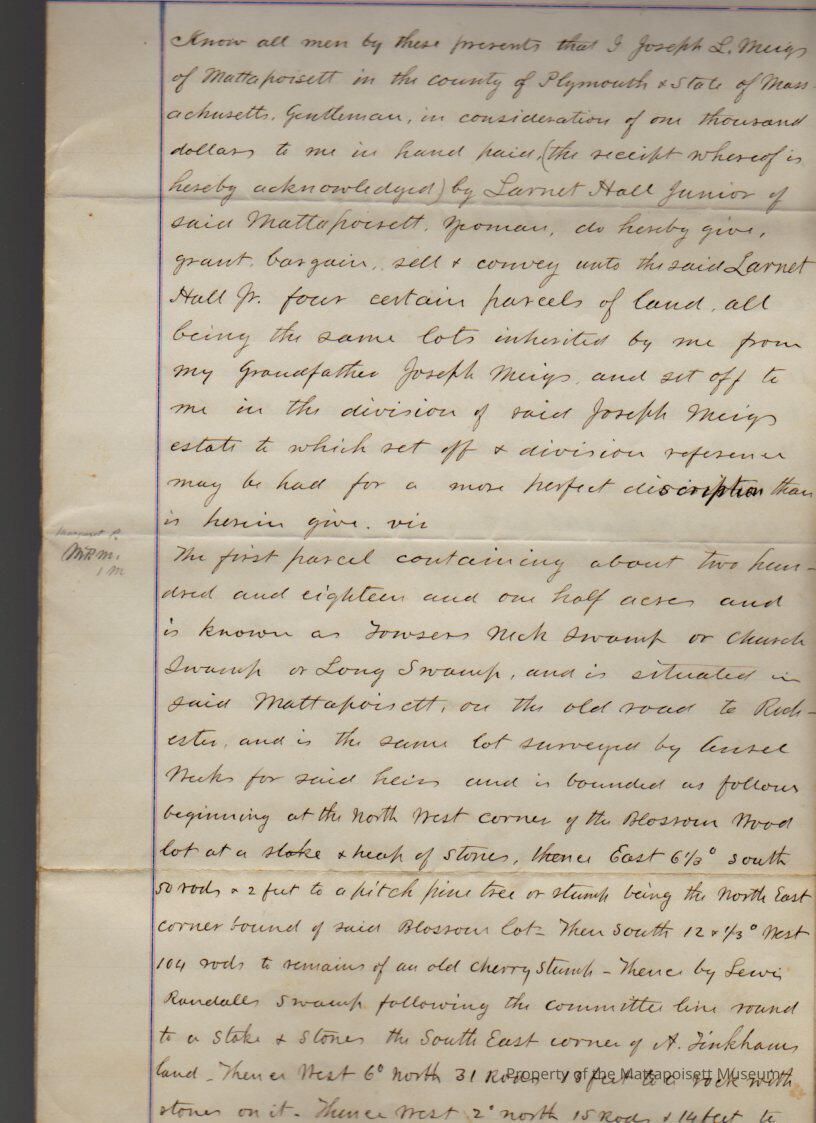 Know all men by these presents that I Joseph L. Meigs
of Mattapoisett in the county of Plymouth & State of Mass-
achusetts, Gentleman, in consideration of one thousand
dollars to me in hand paid, (the receipt whereof is
hereby acknowledged) by Larnet Hall Junior of
said Mattapoisett, yeoman, do hereby give,
grant, bargain, sell & convey unto the said Larnet
Hall Jr. four certain parcels of land, all
being the same lots inherited by me from
my Grandfather Joseph Meigs, and set off to
me in the division of said Joseph Meigs
estate to which set off & division reference
may be had for a more perfect discription than
is herein give. viz
Margaret P.
M.P.M.
1 M
The first parcel containing about two hun-
dred and eighteen and one half acres and
is known as Towsers Neck Swamp or Church
Swamp or Long Swamp, and is situated in
said Mattapoisett, on the old road to Roch-
ester, and is the same lot surveyed by Ansel
Weeks for said heirs and is bounded as follows
beginning at the North West corner of the Blossom Wood
lot at a stake & heap of stones, thence East 6 1/3° South
50 rods & 2 feet to a pitch pine tree or stump being the North East
corner bound of said Blossom lot - Then South 12 & 1/3° West
104 rods to remains of an old cherry stump - Thence by Lewis
Randalls Swamp following the committee line round
to a Stake & Stones the South East corner of A. Tinkhams
land - Thence West 6° North 31 Rods 13 feet to a rock with
stones on it - Thence West 2° north 15 Rods & 14 feet to
Property of the Mattapoisett Museum